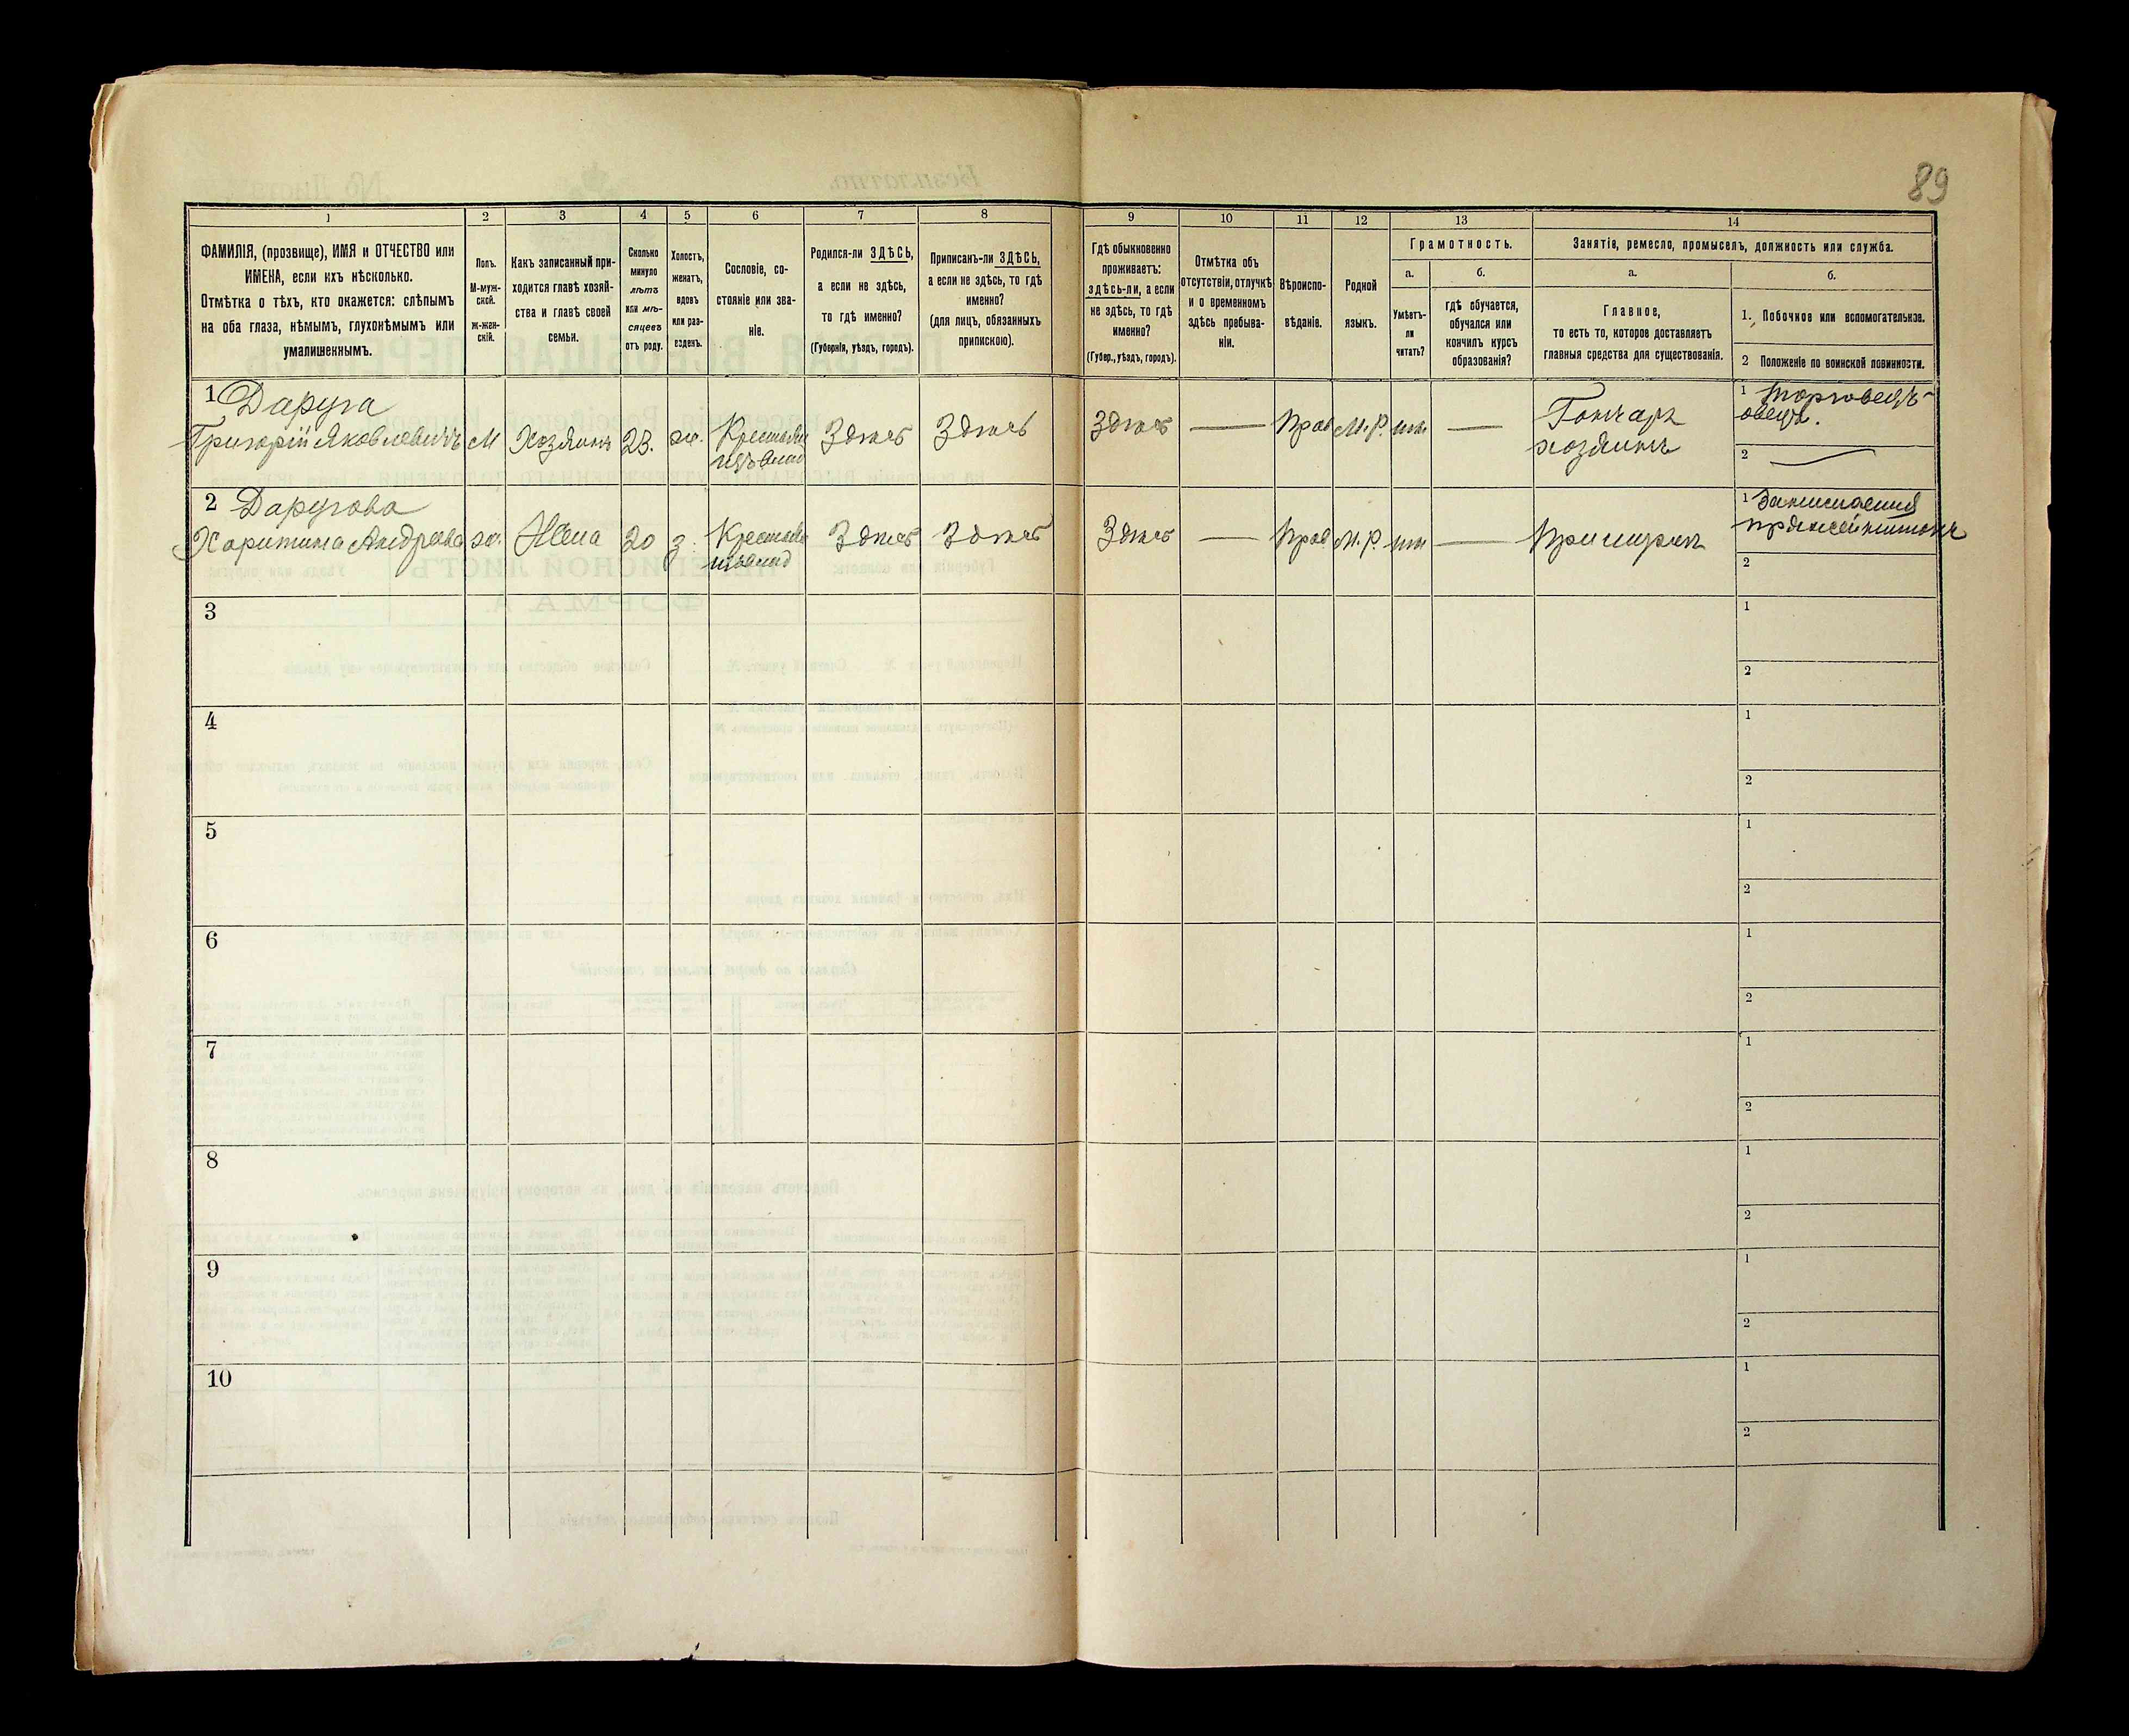 89
1
2
3
4
5
6
7
8
9
10
11
12
13
14
ФАМИЛІЯ, (прозвище), ИМЯ и ОТЧЕСТВО или
ИМЕНА, если ихъ нѣсколько.
Отмѣтка о тѣхъ, кто окажется: слѣпымъ
на оба глаза, нѣмымъ, глухонѣмымъ или
умалишеннымъ.
Полъ.
М-муж-
ской.
ж-жен-
скій.
Какъ записанный при-
ходится главѣ хозяй-
ства и главѣ своей
семьи.
Сколько
минуло
лѣтъ
или мѣ-
сяцевъ
отъ роду.
Холостъ,
женатъ,
вдовъ
или раз-
еденъ.
Сословіе, со-
стояніе или зва-
ніе.
Родился-ли ЗДѢСЬ,
а если не здѣсь,
то гдѣ именно?
(Губернія, уѣздъ, городъ).
Приписанъ-ли ЗДѢСЬ,
а если не здѣсь, то гдѣ
именно?
(для лицъ, обязанныхъ
припискою).
Гдѣ обыкновенно
проживаетъ:
здѣсь-ли, а если
не здѣсь, то гдѣ
именно?
(Губер., уѣздъ, городъ).
Отмѣтка объ
отсутствіи, отлучкѣ
и о временномъ
здѣсь пребыва-
ніи.
Вѣроиспо-
вѣданіе.
Родной
языкъ.
Грамотность.
а.
Умѣетъ-
ли
читать?
б.
гдѣ обучается,
обучался или
кончилъ курсъ
образованія?
Занятіе, ремесло, промыселъ, должность или служба.
а.
Главное,
то есть то, которое доставляетъ
главныя средства для существованія.
б.
1. Побочное или вспомогательное.
2 Положеніе по воинской повинности.
1 Даруга
Григорій Яковлевичъ
М
Хозяинъ
23.
ж.
Здѣсь
Здѣсь
Здѣсь
—
Прав
М. Р.
—
Гончаръ
хозяинъ
1 Торговецъ
овецъ.
2 —
2 Даругова
Харитина Андреева
ж.
Жена
20
з.
Здѣсь
Здѣсь
Здѣсь
—
Прав
М. Р.
—
При мужѣ
1 Занимается
пряжей нитокъ
2
3
1
2
4
1
2
5
1
2
6
1
2
7
1
2
8
1
2
9
1
2
10
1
2